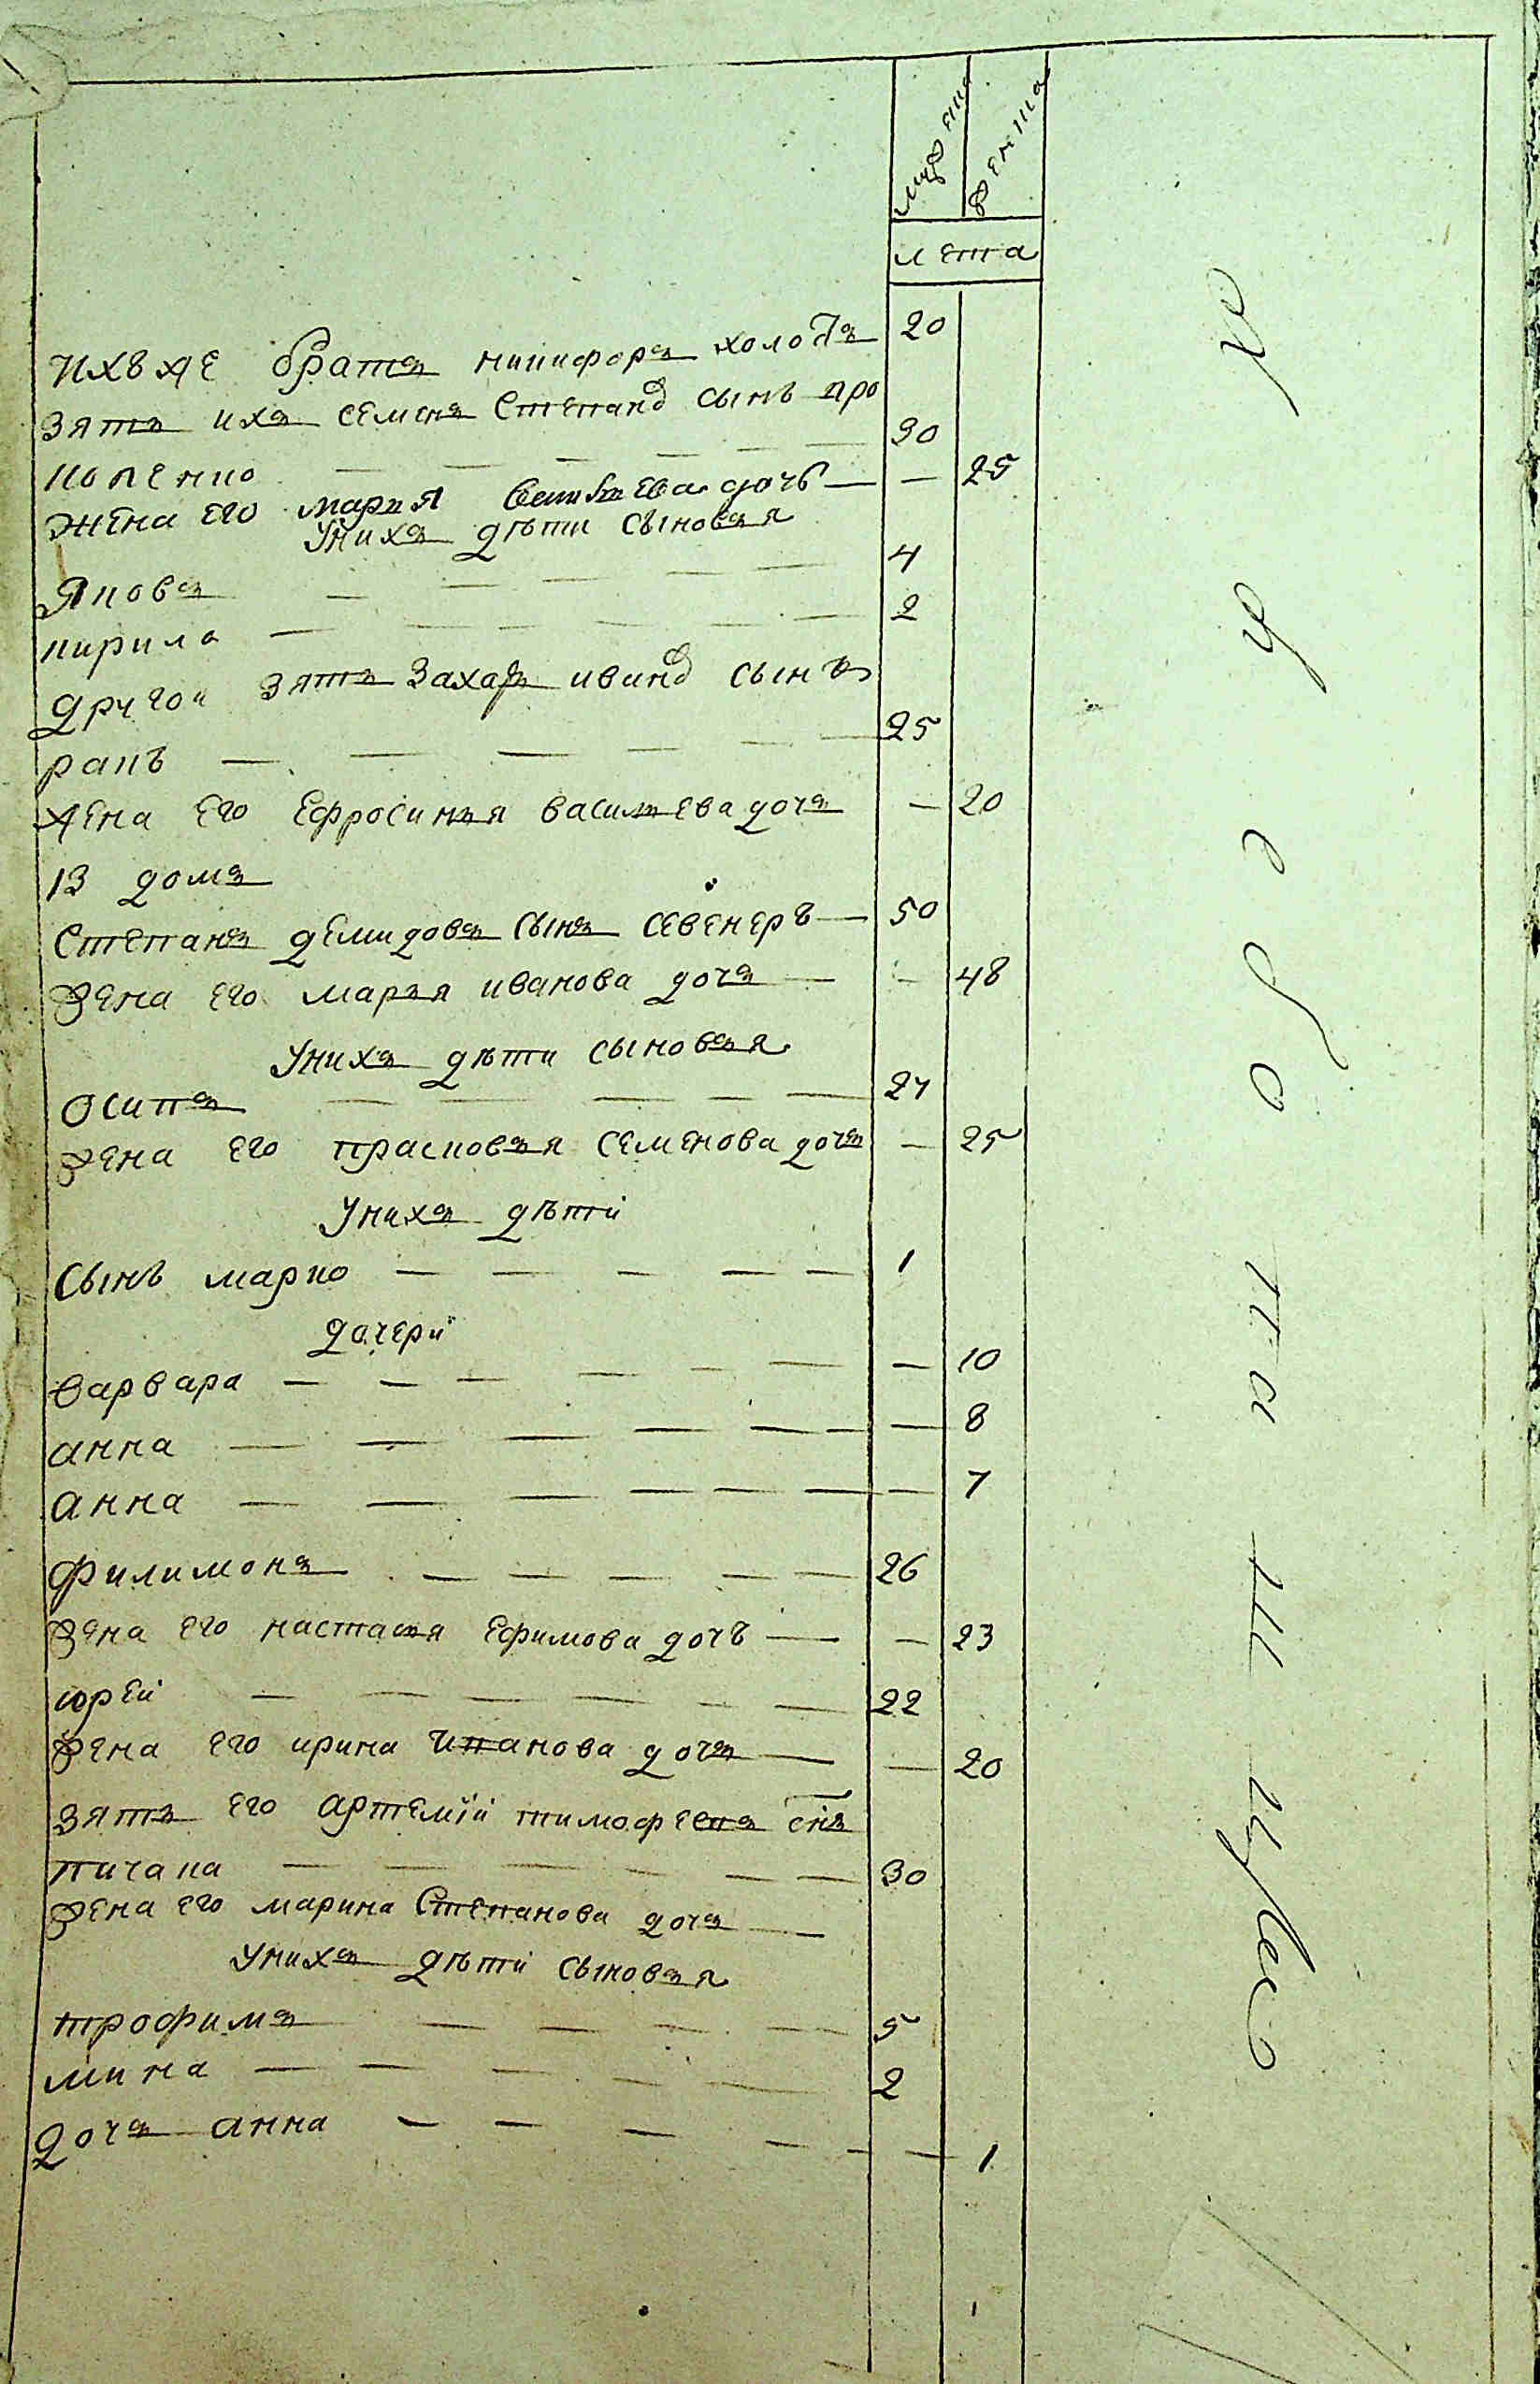 мужеска
женска
лета
ихъ же братъ никифоръ холостъ 20
зять ихъ семенъ степанов сынъ про
копенко — — — — — 30
жена его мария васильева дочь — — 25
у нихъ дѣти сыновья
яковъ — — — — — 4
кирила — — — — — 2
другой зять захаръ иванов сынъ
ракъ — — — — — 25
жена его ефросинья васильева дочь — 20
13 домъ
степанъ демидовъ сынъ севенеръ — 50
жена его марья иванова дочь — — 48
у нихъ дѣти сыновья
осипъ — — — — — 27
жена его прасковья семенова дочь — 25
у нихъ дѣти
сынъ марко — — — — — 1
дочери
варвара — — — — — — 10
анна — — — — — — 8
анна — — — — — — — 7
филимонъ — — — — — 26
жена его настасья ефимова дочь — — 23
юрей — — — — — — 22
жена его ирина степанова дочь — — 20
зять его артемiй тимофеевъ снъ
пичака — — — — — — 30
жена его марина степанова дочь —
у нихъ дѣти сыновья
трофимъ — — — — 5
мина — — — — — 2
дочь анна — — — — — — 1